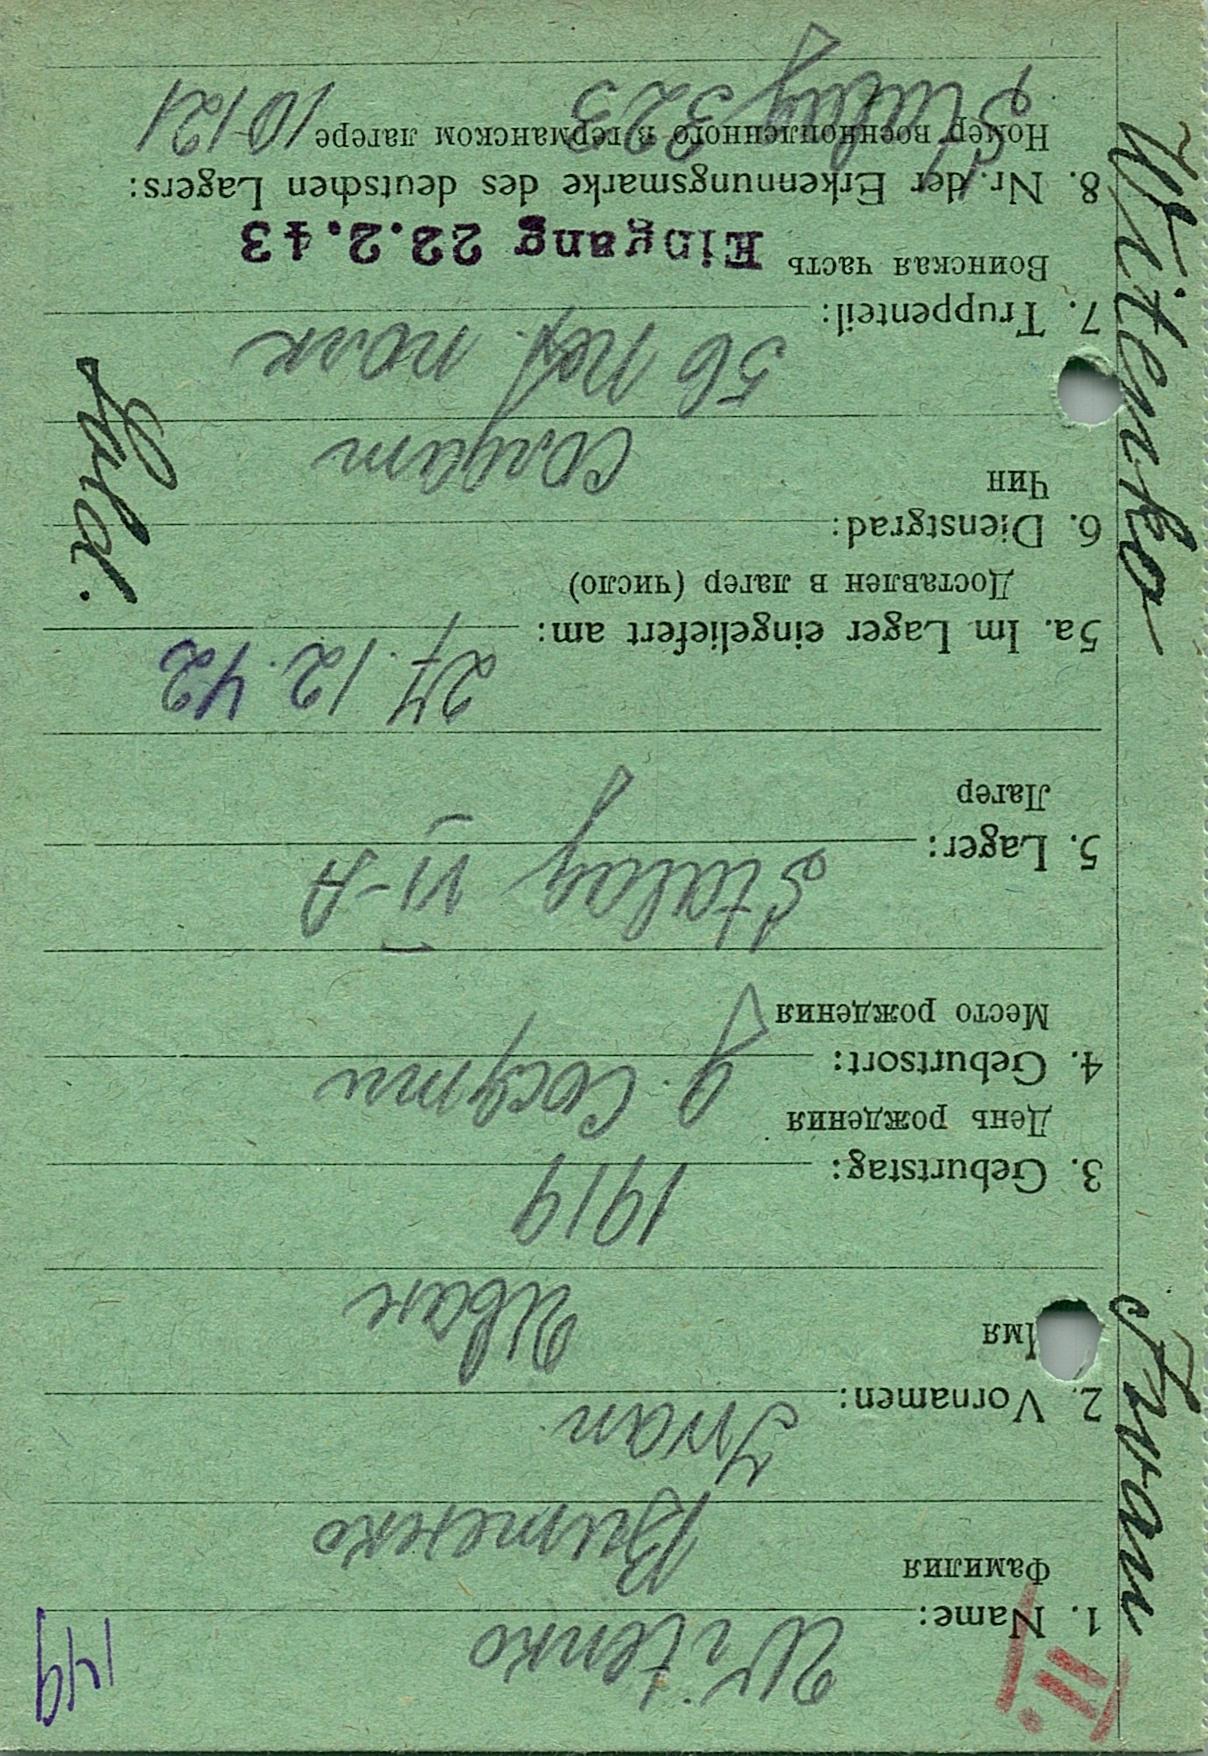 149
II.
Witenko
1. Name:
Фамилия
Витенко
Iwan
2. Vornamen:
Имя
Иван
1919
3. Geburtstag:
День рождения
4. Geburtsort:
Место рождения
Stalag VI-A
5. Lager:
Лагер
27.12.42
5a. Im Lager eingeliefert am:
Доставлен в лагер (число)
6. Dienstgrad:
Чин
солдат
56 полк
7. Truppenteil:
Воинская часть
Eingang 22.2.43
8. Nr. der Erkennungsmarke des deutschen Lagers:
Номер военнопленного в германском лагере
10121
Stalag 323
Sold.
Witenko Iwan